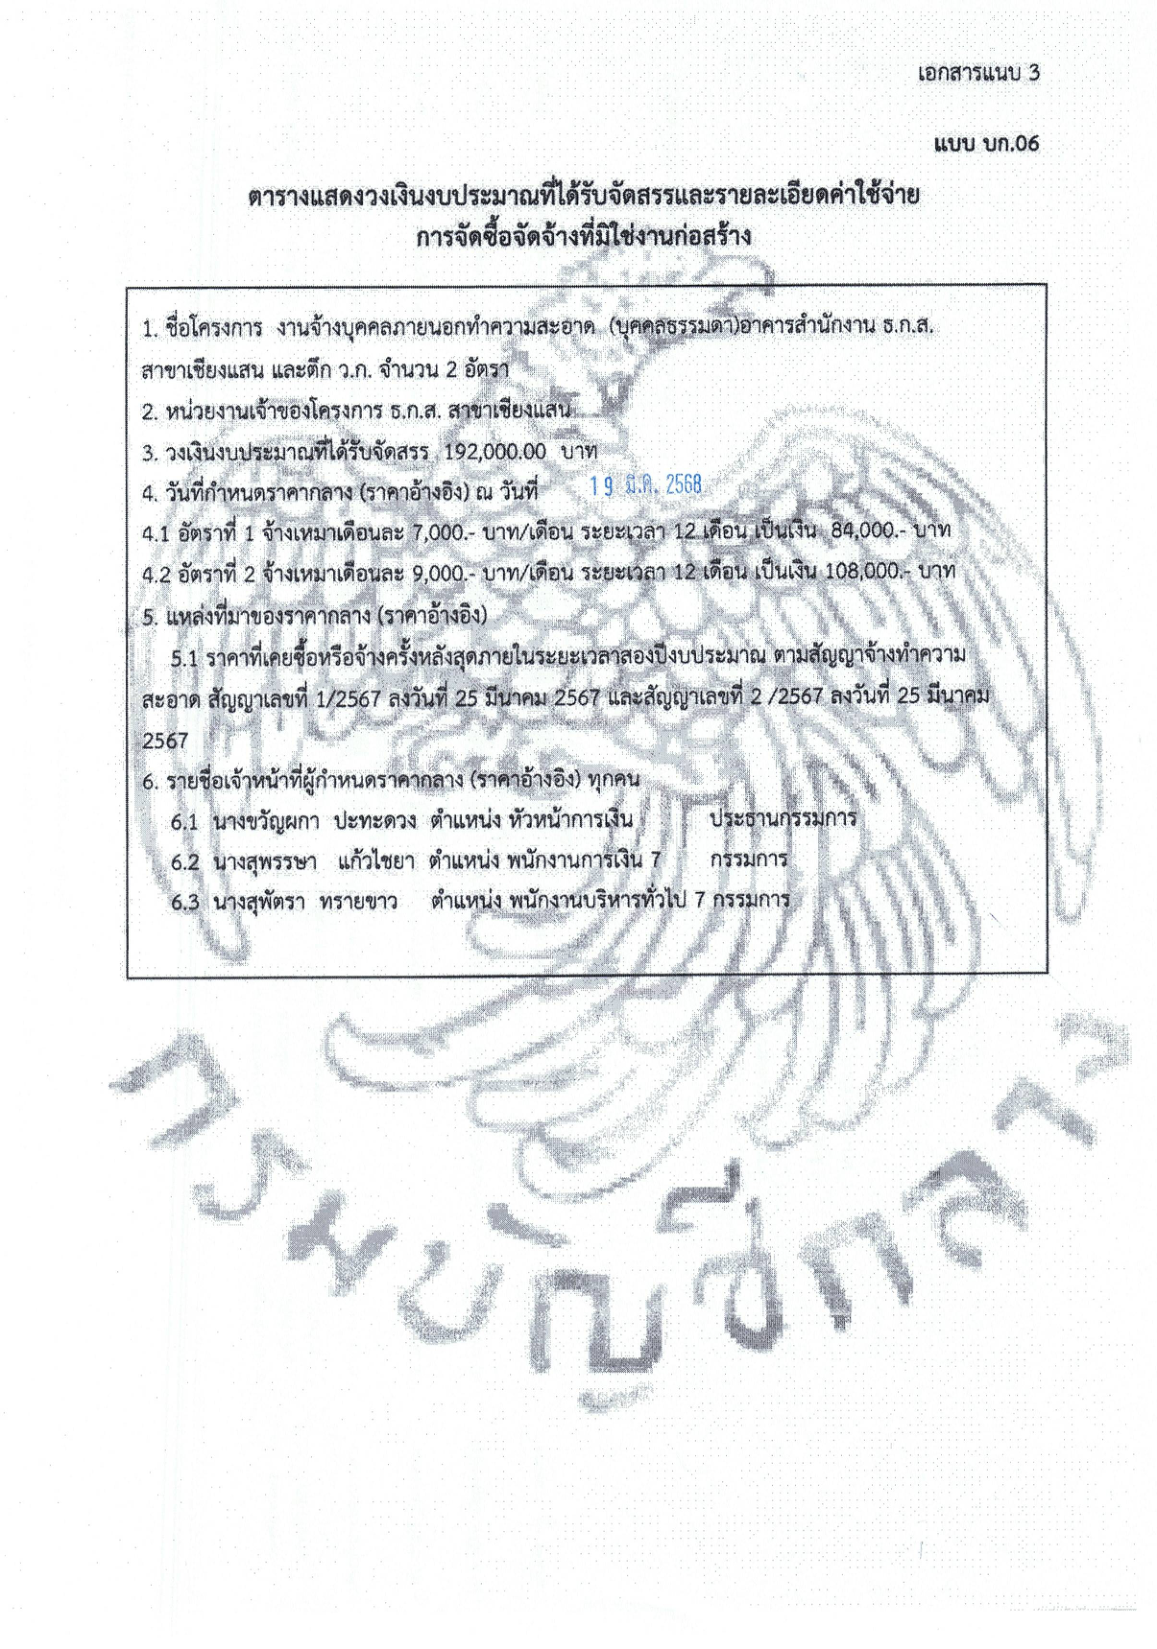 เอกสารแนบ 3
แบบ บก.06
ตารางแสดงวงเงินงบประมาณที่ได้รับจัดสรรและรายละเอียดค่าใช้จ่าย
การจัดซื้อจัดจ้างที่มิใช่งานก่อสร้าง
1. ชื่อโครงการ งานจ้างบุคคลภายนอกทำความสะอาด (บุคคลธรรมดา)อาคารสำนักงาน ธ.ก.ส.
สาขาเชียงแสน และตึก ว.ก. จำนวน 2 อัตรา
2. หน่วยงานเจ้าของโครงการ ธ.ก.ส. สาขาเชียงแสน
3. วงเงินงบประมาณที่ได้รับจัดสรร 192,000.00 บาท
4. วันที่กำหนดราคากลาง (ราคาอ้างอิง) ณ วันที่ 19 มี.ค. 2568
4.1 อัตราที่ 1 จ้างเหมาเดือนละ 7,000.- บาท/เดือน ระยะเวลา 12 เดือน เป็นเงิน 84,000.- บาท
4.2 อัตราที่ 2 จ้างเหมาเดือนละ 9,000.- บาท/เดือน ระยะเวลา 12 เดือน เป็นเงิน 108,000.- บาท
5. แหล่งที่มาของราคากลาง (ราคาอ้างอิง)
5.1 ราคาที่เคยซื้อหรือจ้างครั้งหลังสุดภายในระยะเวลาสองปีงบประมาณ ตามสัญญาจ้างทำความ
สะอาด สัญญาเลขที่ 1/2567 ลงวันที่ 25 มีนาคม 2567 และสัญญาเลขที่ 2 /2567 ลงวันที่ 25 มีนาคม
2567
6. รายชื่อเจ้าหน้าที่ผู้กำหนดราคากลาง (ราคาอ้างอิง) ทุกคน
6.1 นางขวัญผกา ปะทะดวง ตำแหน่ง หัวหน้าการเงิน ประธานกรรมการ
6.2 นางสุพรรษา แก้วไชยา ตำแหน่ง พนักงานการเงิน 7 กรรมการ
6.3 นางสุพัตรา ทรายขาว ตำแหน่ง พนักงานบริหารทั่วไป 7 กรรมการ
กรมบัญชีกลาง